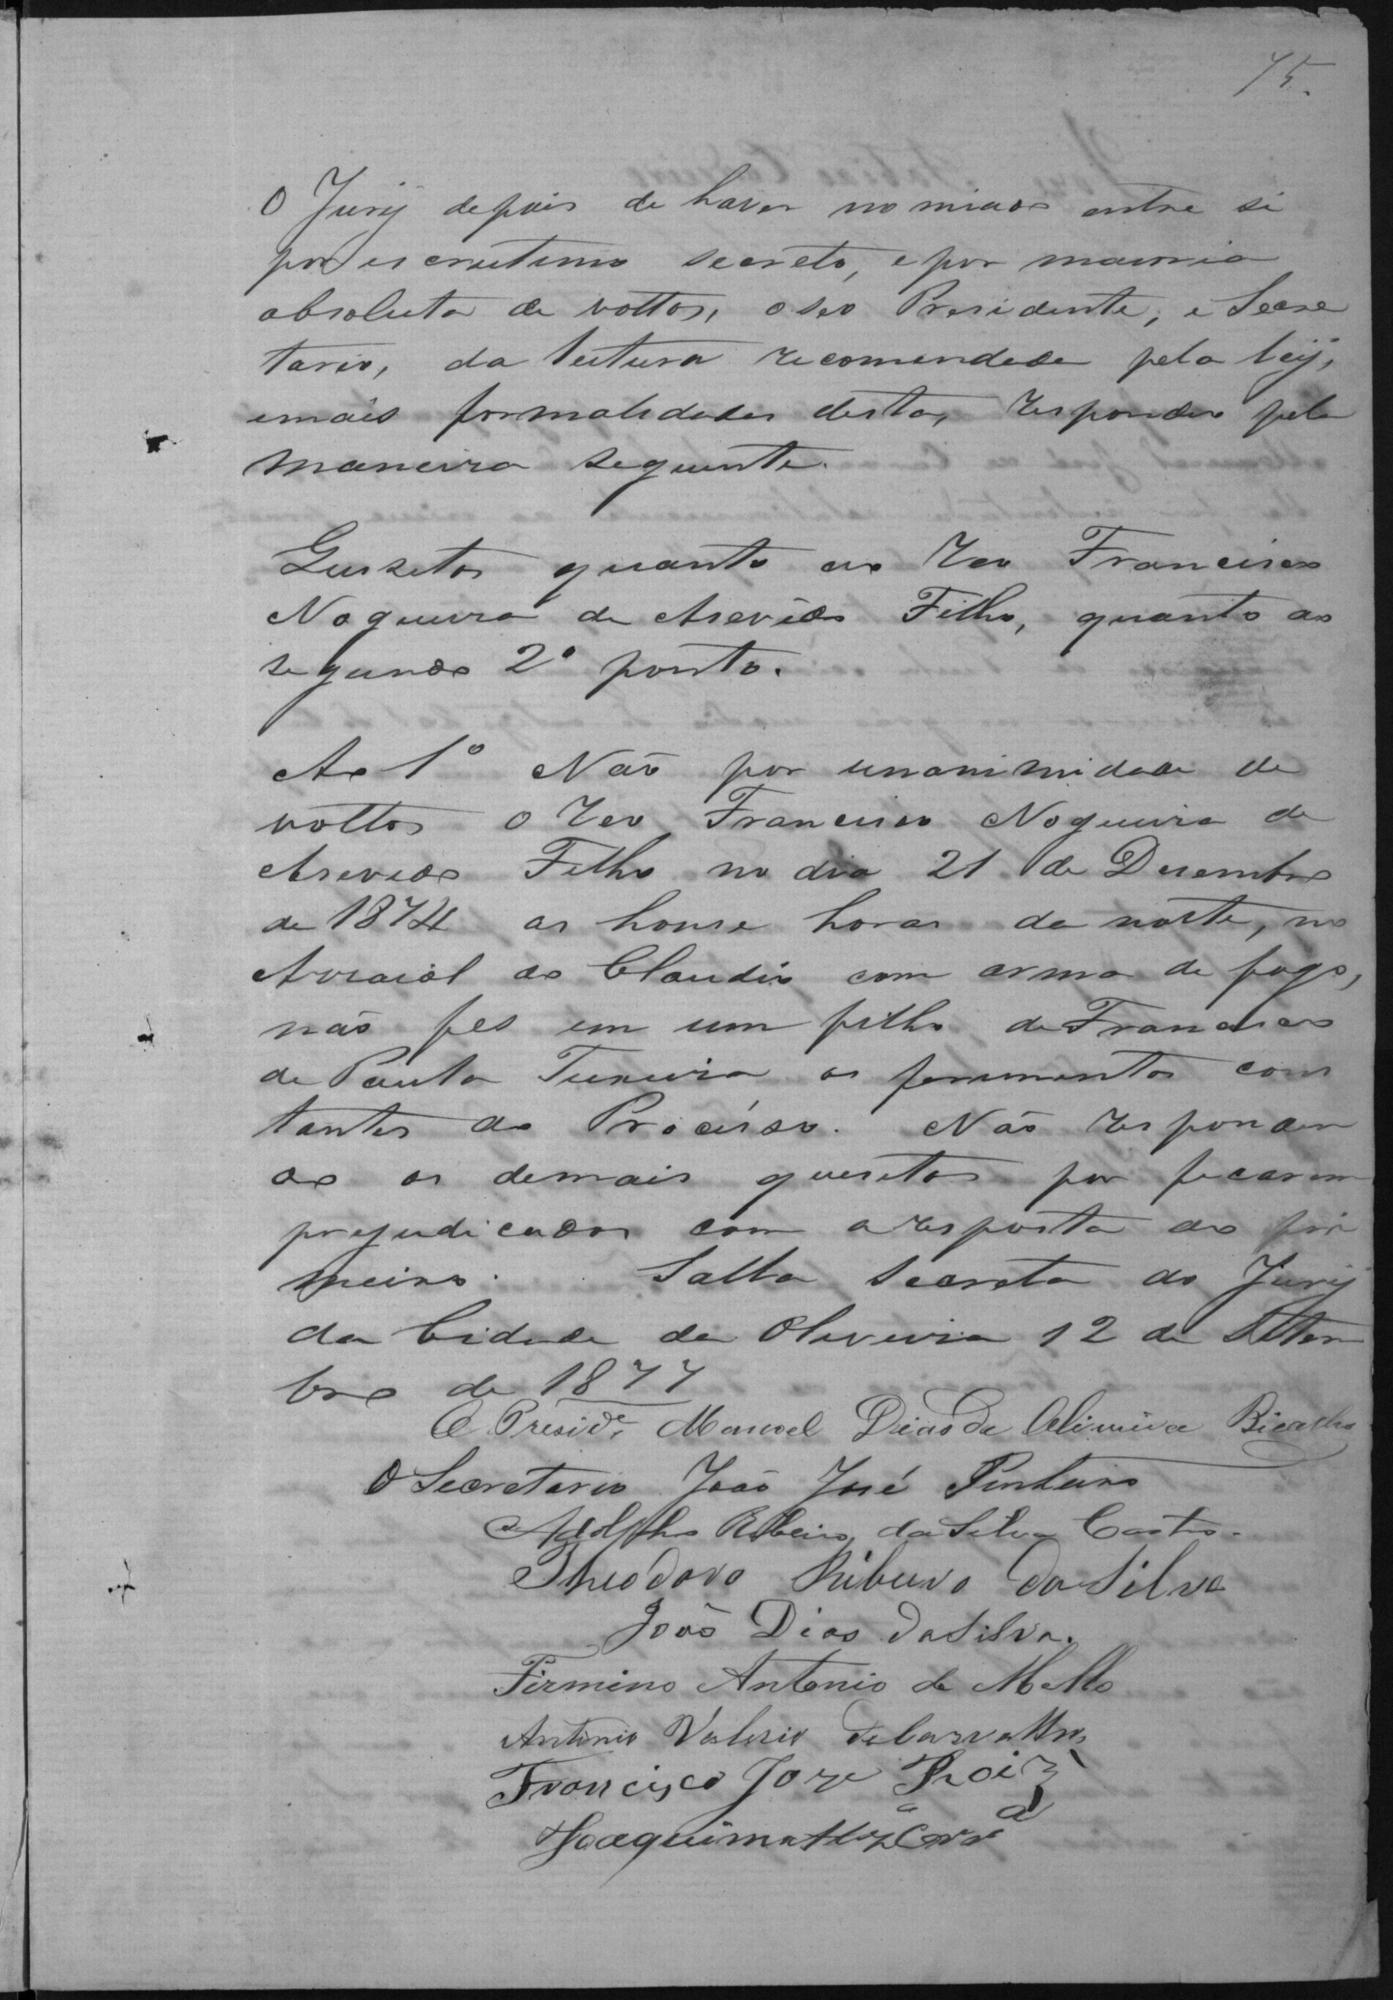 75.
O Jury depois de haver nomiado entre si
por escrutinio secreto, e por maioria
absoluta de vottos, o seo Presidente, e Secre
tario, da leitura recomendada pela leij,
emais formalidades desta, respondeo pela
maneira seguinte.
Quesitos quanto ao reo Francisco
Nogueira de Asevêdo Filho, quanto ao
segundo 2º ponto.
Ao 1º Não por unanimidade de
vottos o reo Francisco Nogueira de
Asevedo Filho no dia 21 de Desembro
de 1874 as honse horas da noite, no
Arraial do Claudio com arma de fogo,
não fes em um filho de Francisco
de Paula Teixeira os ferimentos cons
tantes do Procésso. Não responden
do os demais quesitos por ficarem
prejudicados com a resposta do pri
meiro. Salla secreta do Jury
da Cidade de Oliveira 12 de Setem
bro de 1877
O Preside. Manoel Dias de Oliveira Bicalho
O Secretario João José Pinheiro
Adolpho Ribeiro da Silva Castro.
Theodoro Ribeiro da Silva
João Dias da Silva.
Firmino Antonio de Mello
Antonio Valerio de Carvalho
Francisco Joze Roiz
Joaquim